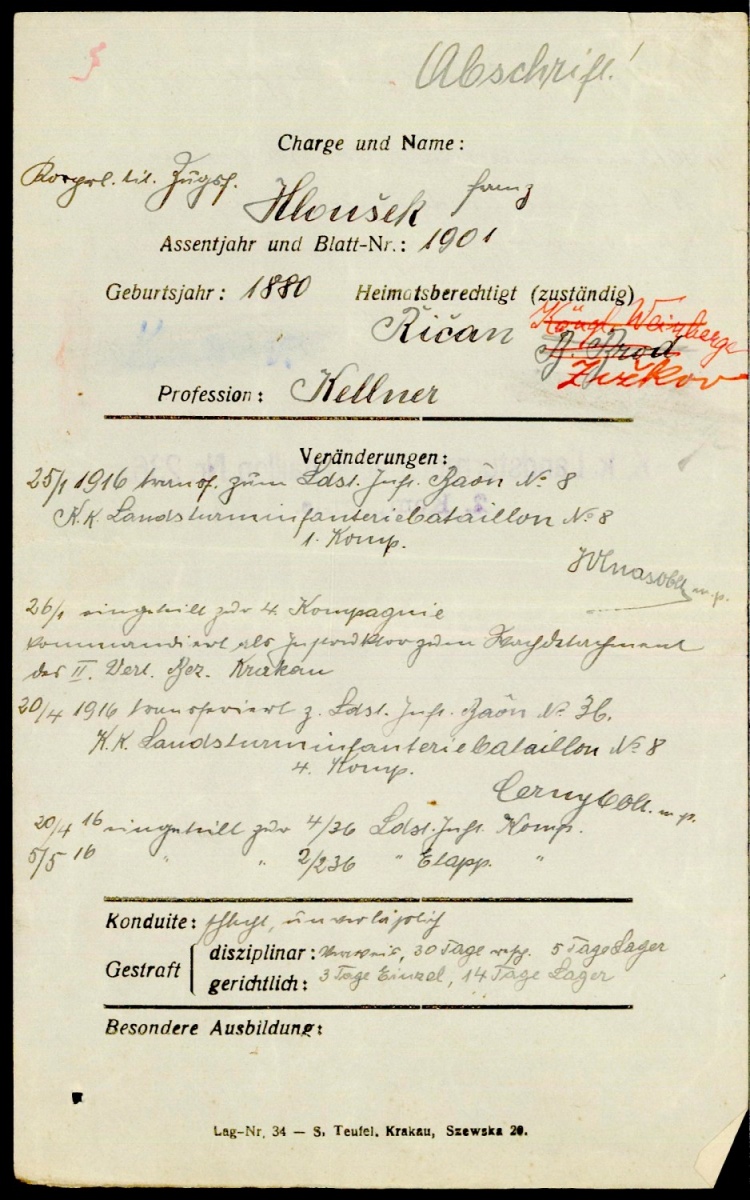 Abschrift!
Charge und Name:
Korprl. tit. Zugsf.
Hloušek Franz
Assentjahr und Blatt-Nr.: 1901
Geburtsjahr: 1880 Heimatsberechtigt (zuständig)
Řičan Köngl. Weinberge
B. Brod
Profession: Kellner Žižkov
Veränderungen:
25/1 1916 transf. zum Ldst. Inft. Baôn No 8
K.K. Landsturminfanteriebataillon No 8
1. Komp.
m.p.
26/1 eingeteilt zur 4. Kompagnie
kommandiert als Instruktor zum Wachdetachment
des II. Vert. Bez. Krakau
20/4 1916 transferiert z. Ldst. Inft. Baôn No 36.
K.K. Landsturminfanteriebataillon No 8
4. Komp.
Cerny Oblt. m.p.
20/4 16 eingeteilt zur 4/36 Ldst. Inft. Komp.
5/5 16 " " 2/236 " Etapp. "
Konduite: schlecht, unverläßlich
Gestraft disziplinar: Verweis, 30 Tage 5 Tage Lager
gerichtlich: 3 Tage Einzel, 14 Tage Lager
Besondere Ausbildung:
Lag-Nr. 34 — S. Teufel, Krakau, Szewska 20.